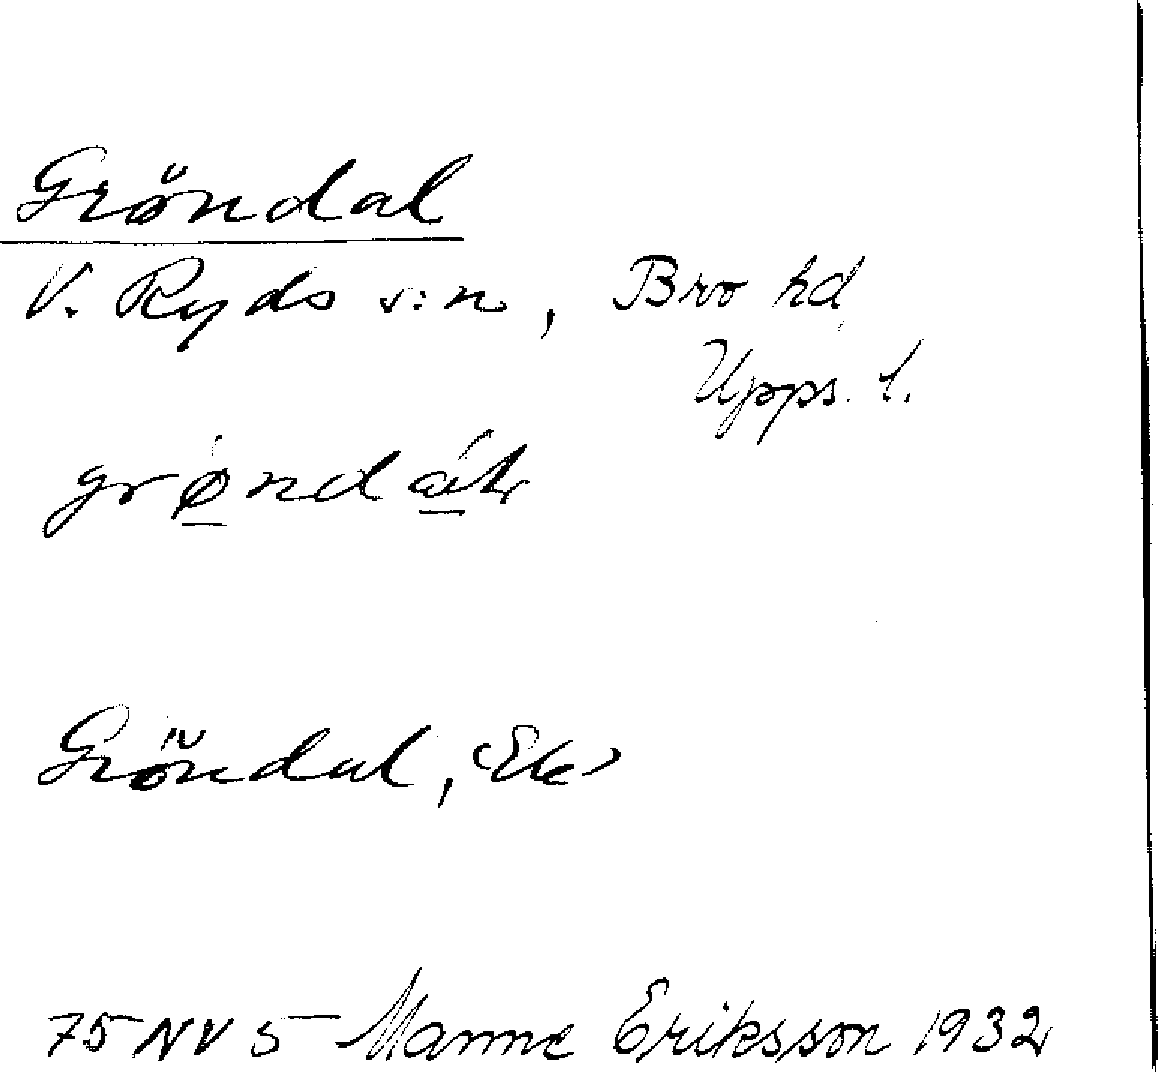 Gröndal
V. Ryds s:n, Bro hd
Upps. l.
Gröndal, Ek
75 NV 5 Manne Eriksson 1932